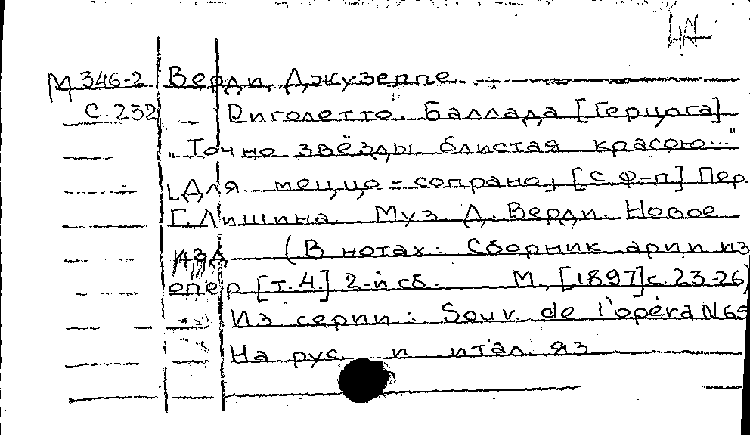 М 346-2 Верди, Джузеппе.
с. 232 Риголетто. Баллада [Герцога]
"Точно звёзды блистая красою..."
[Для меццо-сопрано, [с ф-п] Пер.
Г. Лишина. Муз. Д. Верди. Новое
изд. (В нотах: Сборник арий из
опер [т.4.] 2-й сб. М, [1897] с. 23-26)
Из серии: Souv. de l'opéra N 65
На рус. и итал. яз.